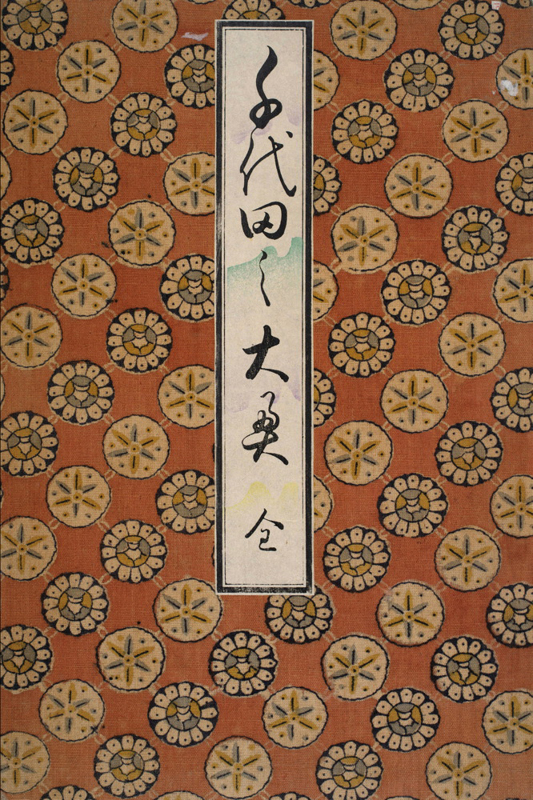 千代田之大奥 全